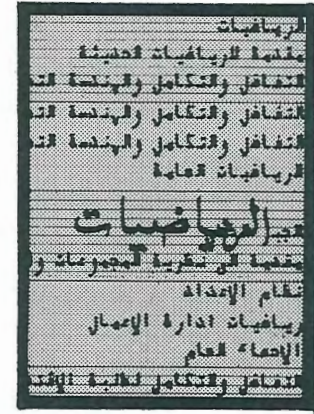 الرياضيات
مقدمة للرياضيات الحديثة
التفاضل والتكامل والهندسة التح
التفاضل والتكامل والهندسة التح
التفاضل والتكامل والهندسة التح
الرياضيات العامة
الرياضيات
الجبر
مقدمة في نظرية المجموعات و
نظام الإعداد
رياضيات ادارة الإعمال
الإحصاء العام
التفاضل والتكامل لطلبة الاقتص